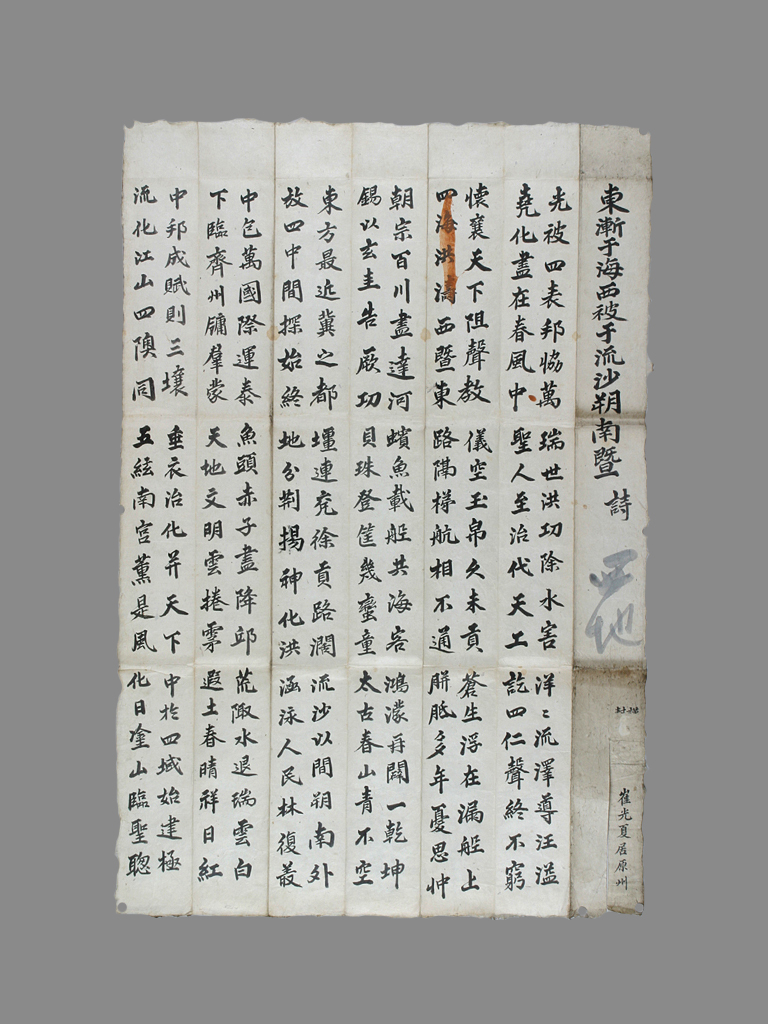 東漸于海西被于流沙朔南暨 詩
崔光夏居原州
光被四表邦恊萬
堯化盡在春風中
瑞世洪功除水害
聖人至治代天工
洋〻流澤導汪溢
訖四仁聲終不窮
懷襄天下阻聲教
四海洪濤西暨東
儀空玉帛久未貢
路隔梯航相不通
蒼生浮在漏船上
胼胝多年憂思忡
朝宗百川盡達河
錫以玄圭告厥功
蠙魚載船共海客
貝珠登筐幾蠻童
鴻濛再闢一乾坤
太古春山青不空
東方最近冀之都
放四中間探始終
壃連兗徐貢路濶
地分荆揚神化洪
流沙以間朔南外
涵泳人民林復叢
中包萬國際運泰
下臨齊州牖羣蒙
魚頭赤子盡降邱
天地文明雲捲雺
荒陬水退瑞雲白
遐土春晴祥日紅
中邦成賦則三壤
流化江山四隩同
垂衣治化并天下
五絃南宮薰是風
中於四域始建極
化日塗山臨聖聰